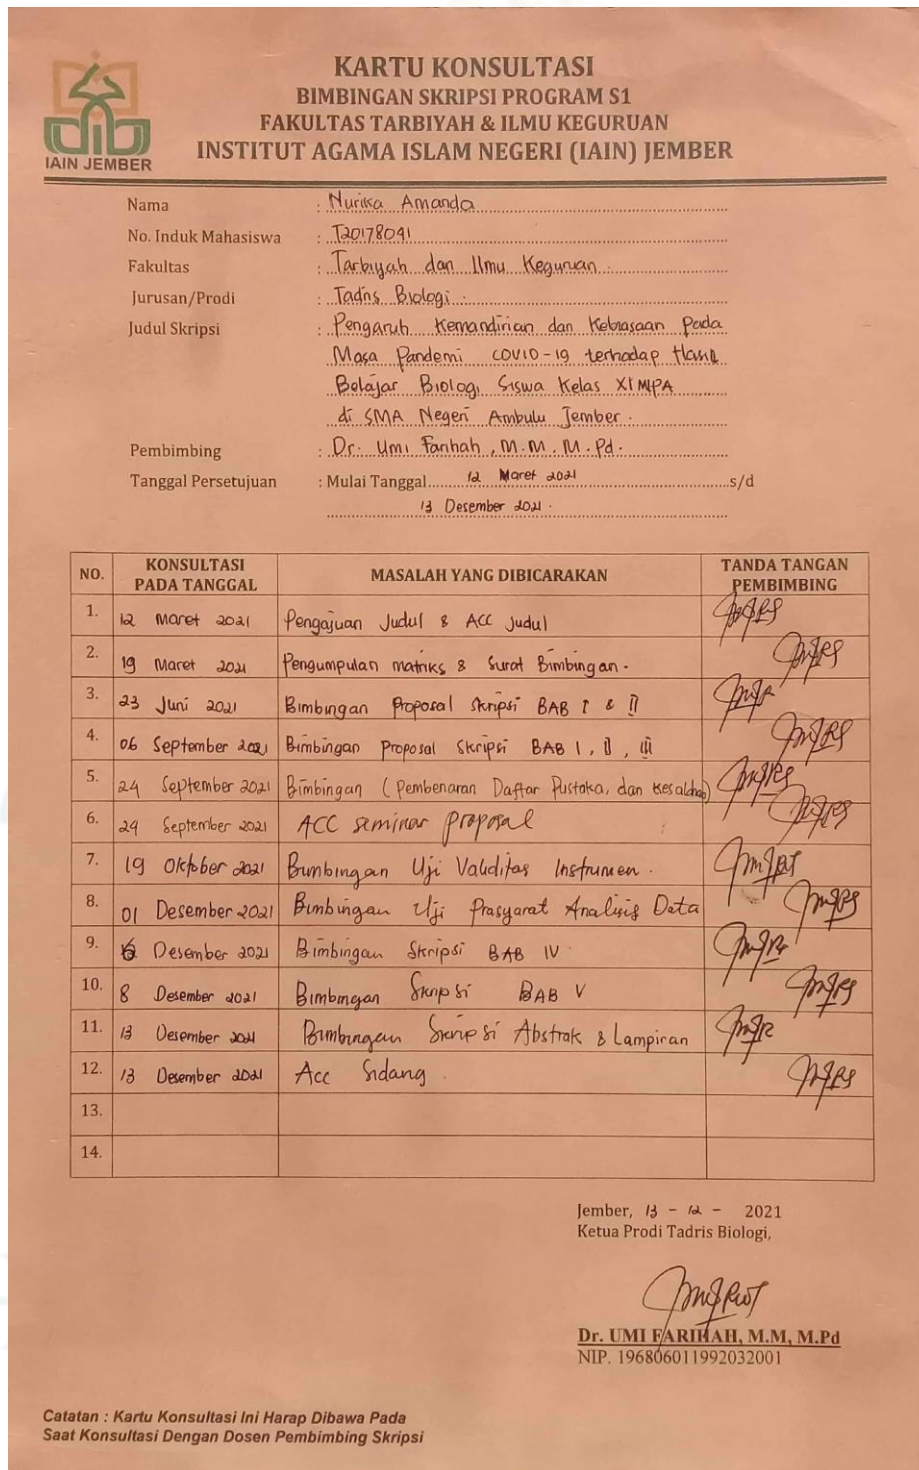 KARTU KONSULTASI
BIMBINGAN SKRIPSI PROGRAM S1
FAKULTAS TARBIYAH & ILMU KEGURUAN
INSTITUT AGAMA ISLAM NEGERI (IAIN) JEMBER
IAIN JEMBER
Nama : Nurika Amanda
No. Induk Mahasiswa : T20178091
Fakultas : Tarbiyah dan Ilmu Keguruan
Jurusan/Prodi : Tadris Biologi
Judul Skripsi : Pengaruh Kemandirian dan Kebiasaan pada
Masa Pandemi COVID-19 terhadap Hasil
Belajar Biologi Siswa Kelas XI MIPA
di SMA Negeri Ambulu Jember.
Pembimbing : Dr. Umi Farihah, M.M. M.Pd.
Tanggal Persetujuan : Mulai Tanggal 12 Maret 2021 s/d
13 Desember 2021.
NO. KONSULTASI PADA TANGGAL MASALAH YANG DIBICARAKAN TANDA TANGAN PEMBIMBING
1. 12 Maret 2021 Pengajuan Judul & ACC Judul
2. 19 Maret 2021 Pengumpulan matriks & Surat Bimbingan.
3. 23 Juni 2021 Bimbingan Proposal Skripsi BAB I & II
4. 06 September 2021 Bimbingan Proposal Skripsi BAB I, II, III
5. 24 September 2021 Bimbingan (Pembenaran Daftar Pustaka, dan
6. 29 September 2021 ACC seminar proposal
7. 19 Oktober 2021 Bimbingan Uji Validitas Instrumen.
8. 01 Desember 2021 Bimbingan Uji Prasyarat Analisis Data
9. 6 Desember 2021 Bimbingan Skripsi BAB IV
10. 8 Desember 2021 Bimbingan Skripsi BAB V
11. 13 Desember 2021 Bimbingan Skripsi Abstrak & Lampiran
12. 13 Desember 2021 Acc Sidang.
13.
14.
Jember, 13 - 12 - 2021
Ketua Prodi Tadris Biologi,
Dr. UMI FARIHAH, M.M, M.Pd
NIP. 196806011992032001
Catatan : Kartu Konsultasi Ini Harap Dibawa Pada
Saat Konsultasi Dengan Dosen Pembimbing Skripsi